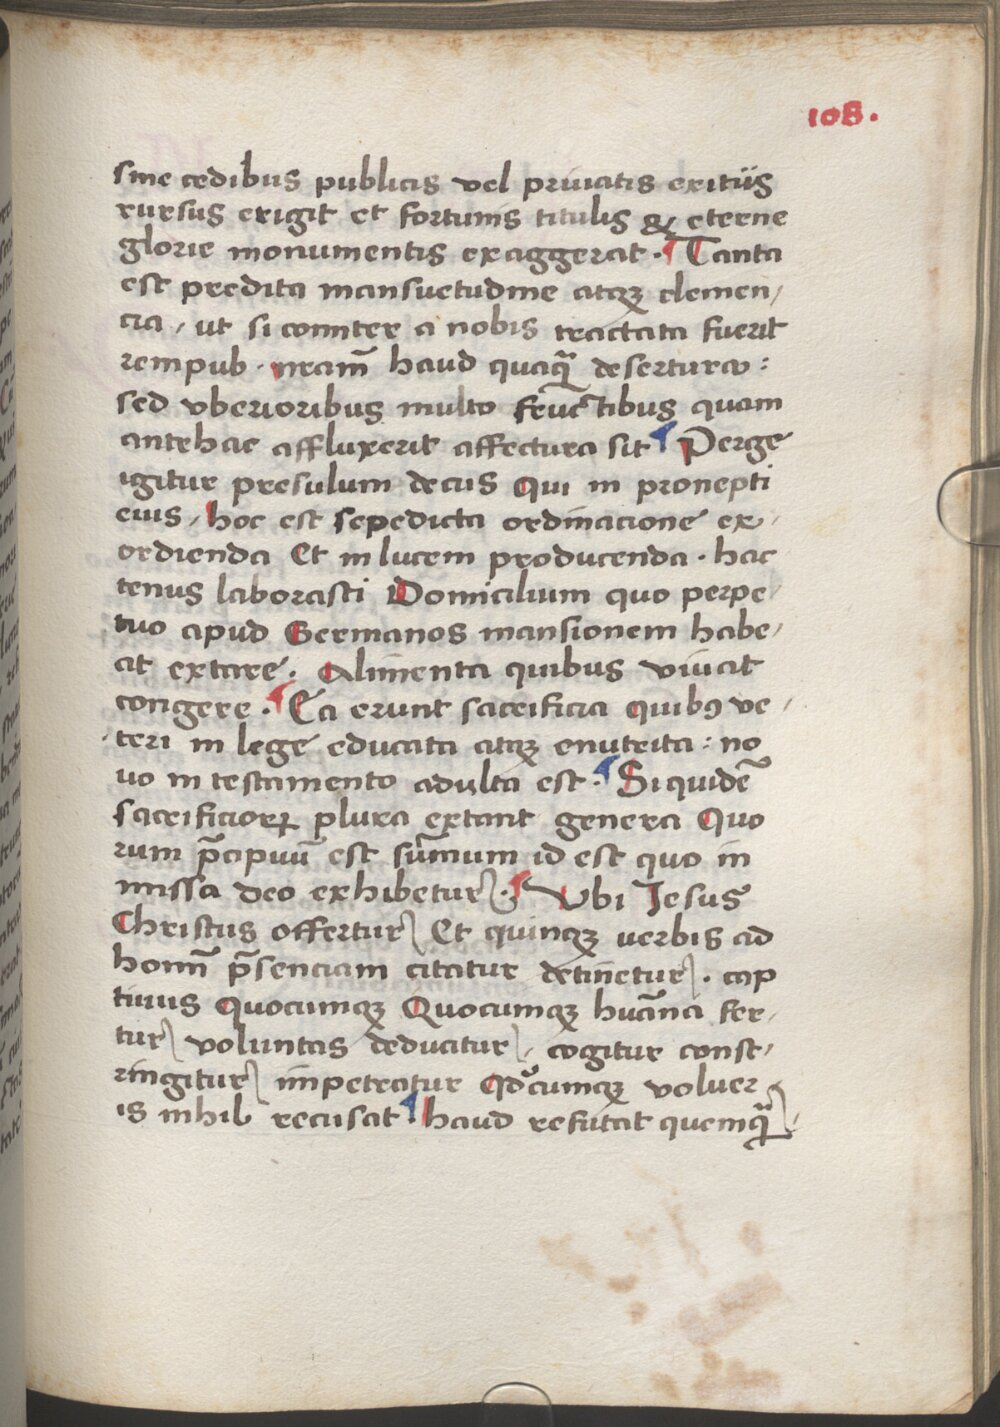 108.
sine cedibus publicis vel priuatis exitiis
rursus erigit et fortunis titulis & eterne
glorie monumentis exaggerat. Tanta
est predita mansuetudine atqꝫ clemen,
cia, ut si comiter a nobis tractata fuerit
rempub. nram̄ haud quaqͣ̄ desertura:
sed vberioribus multo fructibus quam
antehac affluxerit affectura sit Perge
igitur presulum decus Qui in pronepti
eius, hoc est sepedicta ordinacione ex,
ordienda Et in lucem producenda. hac
tenus laborasti Domicilium quo perpe,
tuo apud Germanos mansionem habe,
at extare. Alimenta quibus viuat
congere. Ea erunt sacrificia quibꝰ ve,
teri in lege educata atqꝫ enutrita: no
uo in testamento adulta est. Siquidē
sacrificioꝝ plura extant genera Quo
rum p̄cipuū est sūmum id est quo in
missa deo exhibetur. Vbi Jesus
Christus offertur Et quinqꝫ uerbis ad
homī p̄senciam citatur detinetur. cap
tiuus Quocumqꝫ Quocumqꝫ huāna fer,
tur voluntas deducitur, cogitur const,
ringitur impetratur Qdcumqꝫ voluer
is nihil recusat. haud refutat quemqͣ̄